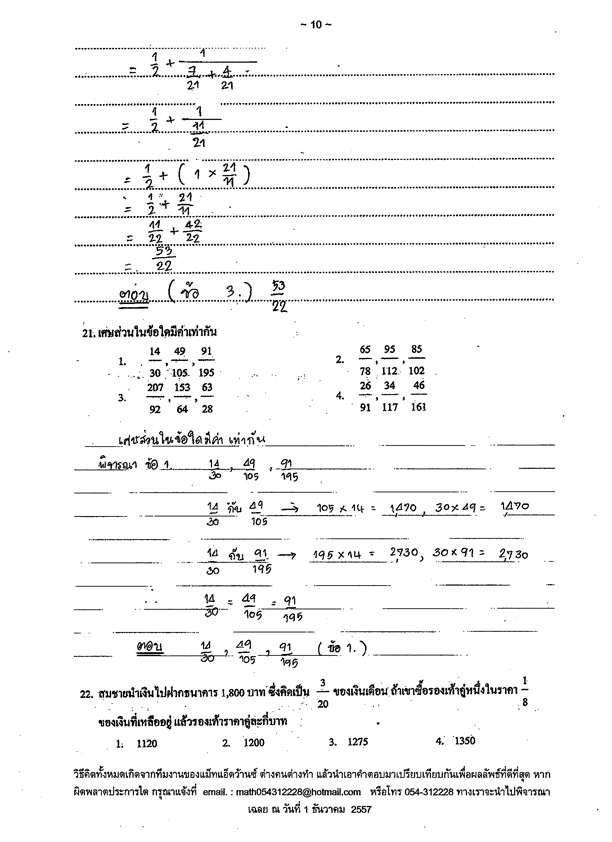 ~ 10 ~
= 1/2 + 1/(7/21 + 4/21)
= 1/2 + 1/(11/21)
= 1/2 + ( 1 × 21/11 )
= 1/2 + 21/11
= 11/22 + 42/22
= 53/22
ตอบ ( ข้อ 3. ) 53/22
21. เศษส่วนในข้อใดมีค่าเท่ากัน
1. 14/30 , 49/105 , 91/195 2. 65/78 , 95/112 , 85/102
3. 207/92 , 153/64 , 63/28 4. 26/91 , 34/117 , 46/161
เศษส่วนในข้อใดมีค่าเท่ากัน
พิจารณา ข้อ 1. 14/30 , 49/105 , 91/195
14/30 กับ 49/105 → 105 × 14 = 1,470 , 30 × 49 = 1,470
14/30 กับ 91/195 → 195 × 14 = 2,730, 30 × 91 = 2,730
∴ 14/30 = 49/105 = 91/195
ตอบ 14/30 , 49/105 , 91/195 ( ข้อ 1. )
22. สมชายนำเงินไปฝากธนาคาร 1,800 บาท ซึ่งคิดเป็น 3/20 ของเงินเดือน ถ้าเขาซื้อรองเท้าคู่หนึ่งในราคา 1/8
ของเงินที่เหลืออยู่ แล้วรองเท้าราคาคู่ละกี่บาท
1. 1120 2. 1200 3. 1275 4. 1350
วิธีคิดทั้งหมดเกิดจากทีมงานของแม็ทแอ็ดว้านซ์ ต่างคนต่างทำ แล้วนำเอาคำตอบมาเปรียบเทียบกันเพื่อผลลัพธ์ที่ดีที่สุด หาก
ผิดพลาดประการใด กรุณาแจ้งที่ email. : math054312228@hotmail.com หรือโทร 054-312228 ทางเราจะนำไปพิจารณา
เฉลย ณ วันที่ 1 ธันวาคม 2557